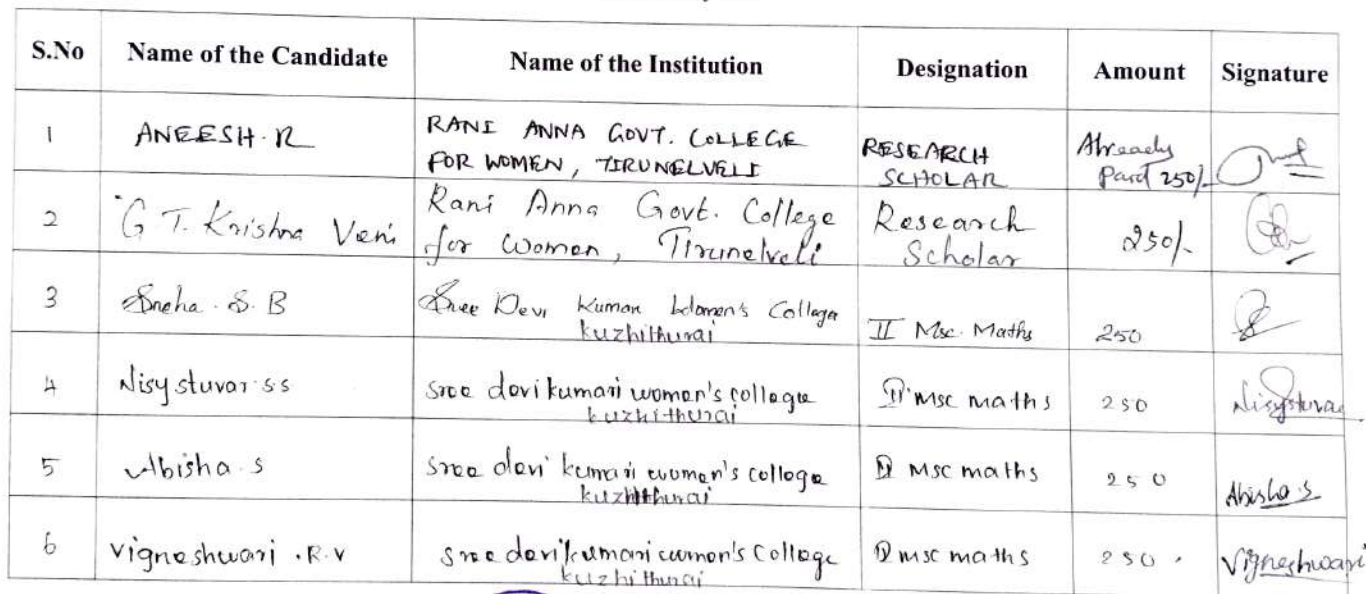 S.No Name of the Candidate Name of the Institution Designation Amount Signature
1 ANEESH. R RANI ANNA GOVT. COLLEGE FOR WOMEN, TIRUNELVELI RESEARCH SCHOLAR Already Paid 250/-
2 G T. Krishna Veni Rani Anna Govt. College for Women, Tirunelveli Research Scholar 250/-
3 Sneha. S. B Sree Devi Kumari Women's College kuzhithurai II Msc. Maths 250
4 Nisy stuvar s.s sree devi kumari women's college kuzhithurai II msc maths 250 Nisystuvar
5 Abisha. S sree devi kumari women's college kuzhithurai II Msc maths 250 Abisha.S
6 Vigneshwari .R.V sree devikumari women's College kuzhithurai II msc maths 250. Vigneshwari